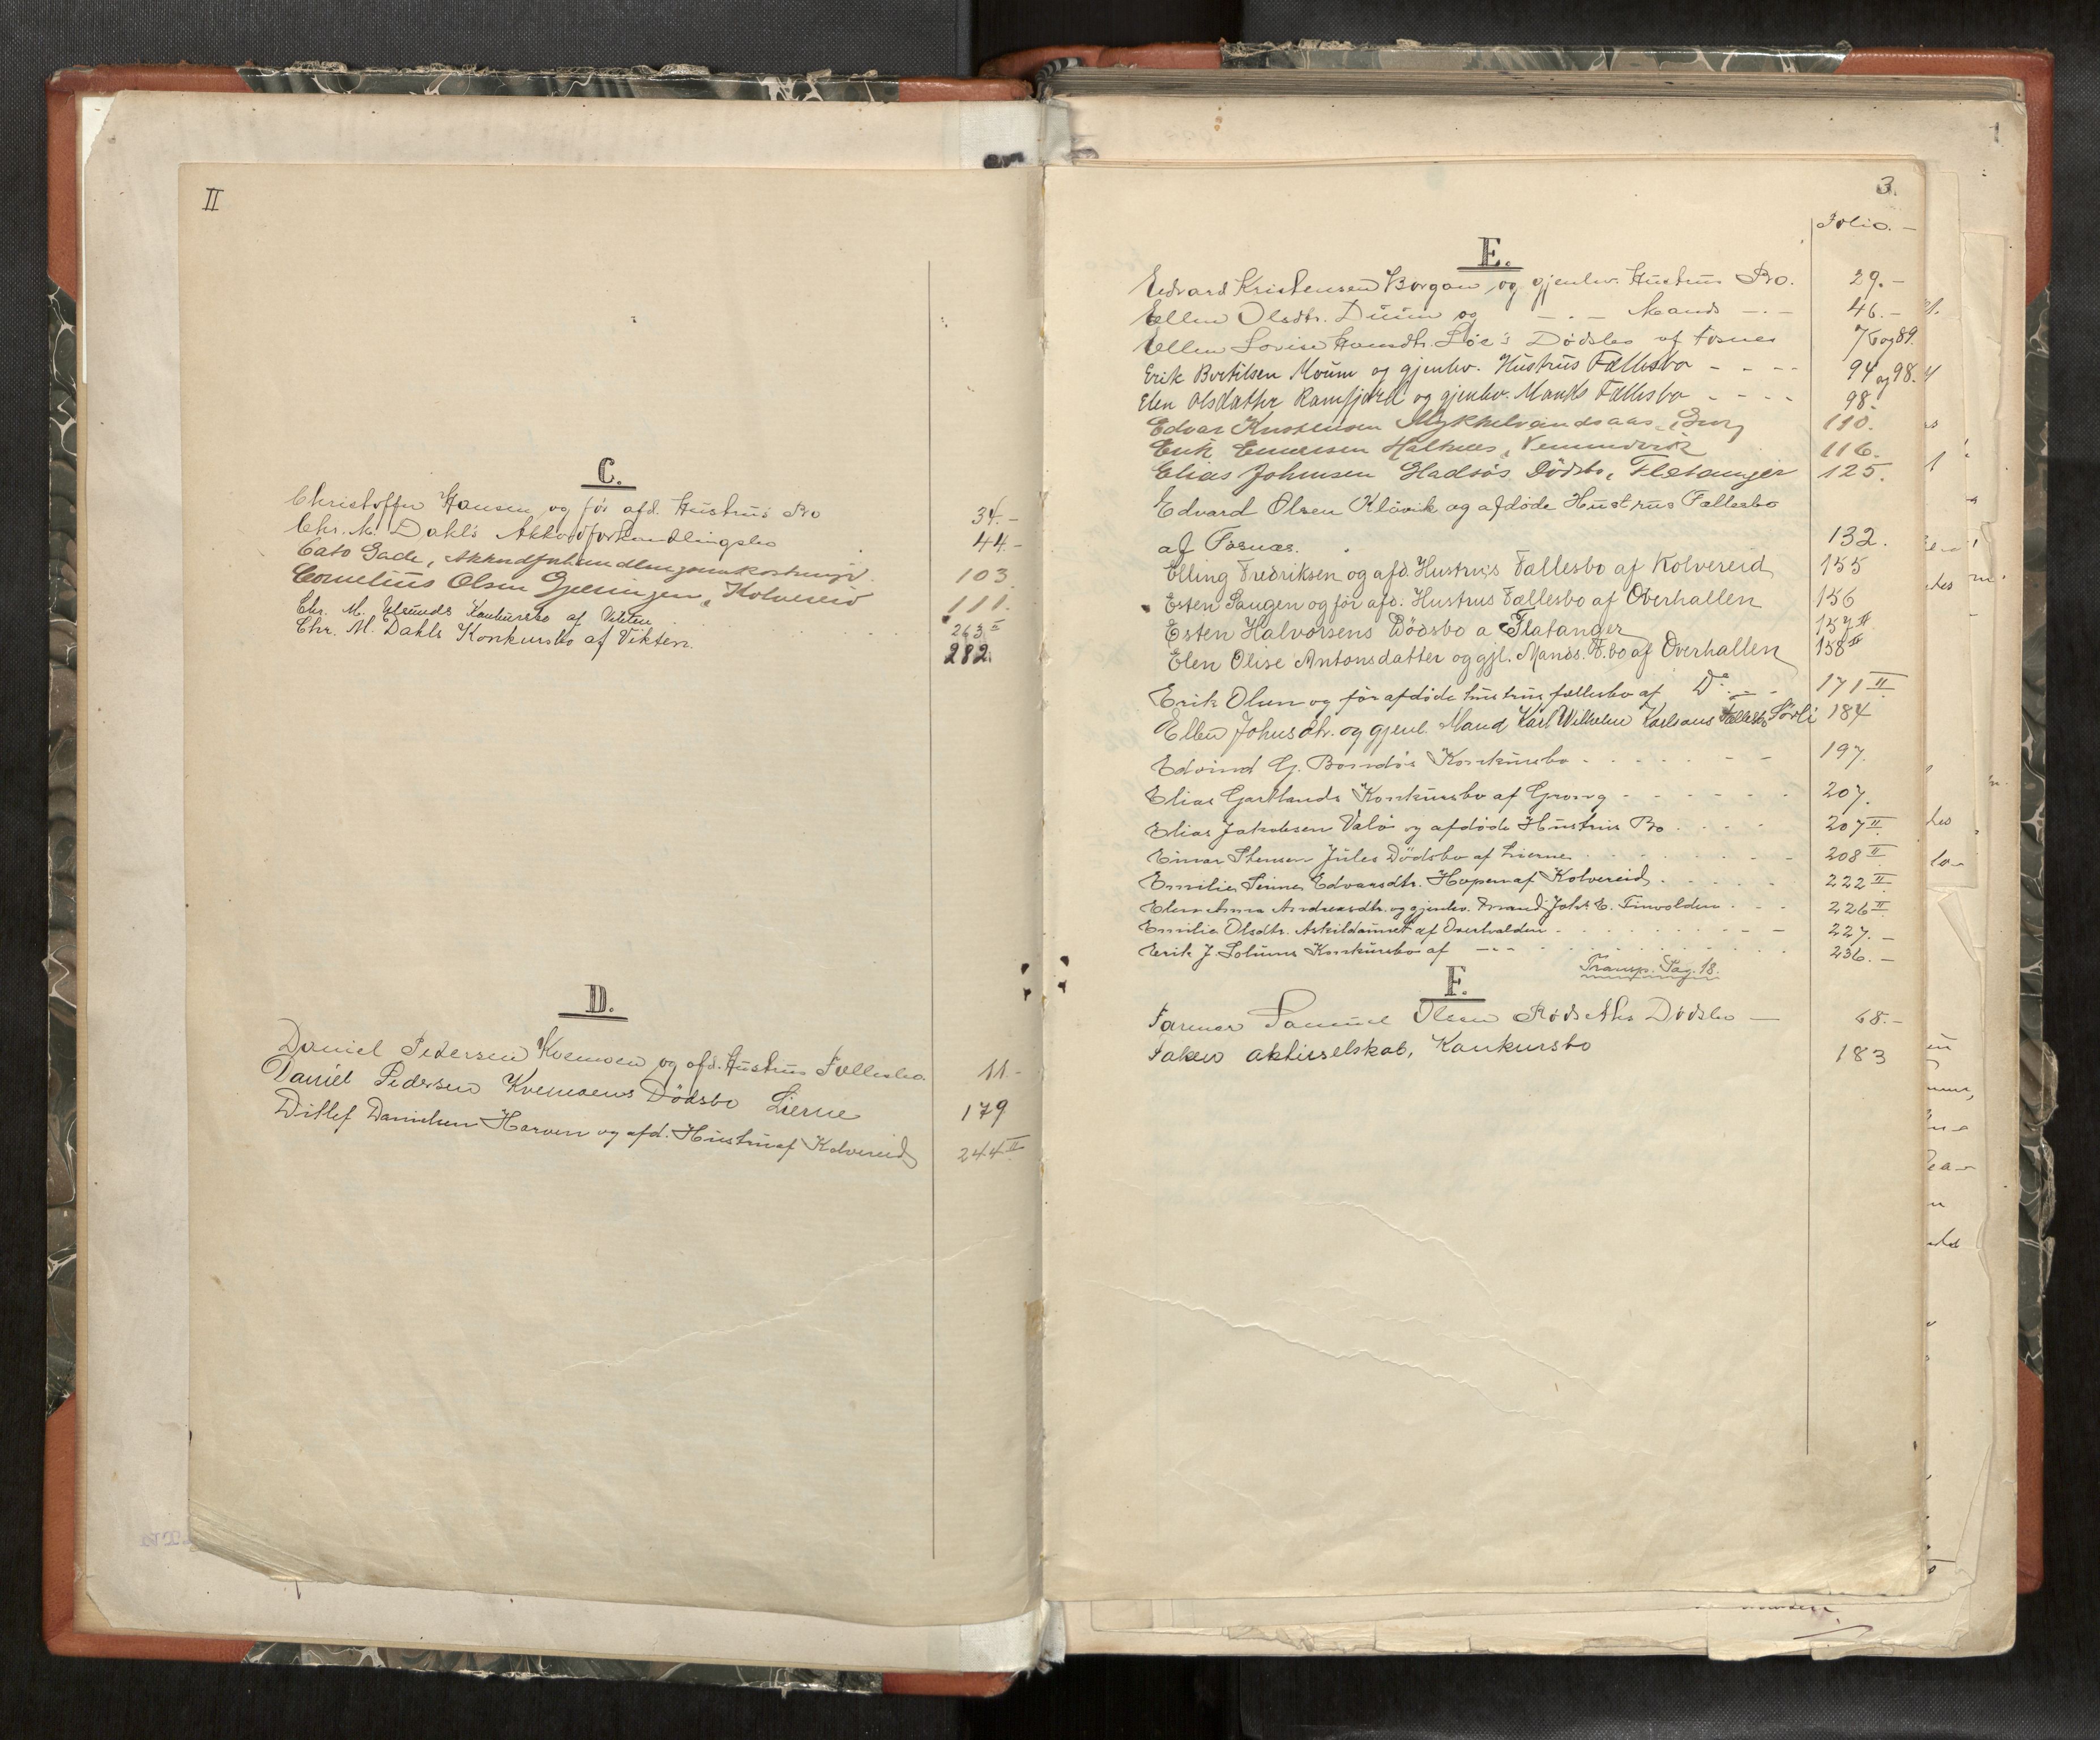 II
C.
Christoffer Hansen og før afd. Hustrus Bo 34.-
Chr. M. Dahls Akkordforhandlingsbo 44.-
Cato Gade, Akkordforhandlingsomkostninger. 103.
Cornelius Olsen Gjerningen, Kolvereid 111.
Chr. M. Konkursbo af Vikten 263 II
Chr. M. Dahls Konkursbo af Vikten. 282.
D.
Daniel Pedersen Kvemoen og afd. Hustrus Fællesbo. 11.-
Daniel Pedersen Kvemoens Dødsbo Lierne 179
Ditlef Danielsen Horven og afd. Hustru af Kolvereid 244 II
3.
Folio.-
E.
Edvard Kristensen Borgan og gjenlev. Hustrus Bo. 29.-
Ellen Olsdtr. Duun og -.- Mands -.- 46.-
Ellen Lovise Søe's Dødsbo af Fosnes 76 og 89.
Erik Bertilsen Moum og gjenlev. Hustrus Fællesbo - - - - 94 og 98.
Elen Olsdatter Ramfjord og gjenlev. Mands Fællesbo - - - - 98.
Edvar Kristensen Mykkelvandsaas, 110.
Erik Halknes, Vemundvik 116.
Elias Johnsen Gladsøs Dødsbo, Flatanger 125.
Edvard Olsen Kløvik og afdøde Hustrus Fællesbo
af Fosnæs. 132.
Elling Fredriksen og afd. Hustrus Fællesbo af Kolvereid 155
Esten Saugen og før afd. Hustrus Fællesbo af Overhallen 156
Esten Halvorsens Dødsbo a Flatanger 157 II
Elen Olise Antonsdatter og gjl. Mands. F.bo af Overhallen 158 II
Erik Olsen og før afdøde hustrus fællesbo af Do -.- 171 II
Ellen Johnsdtr. og gjenl. Mand Karl Wilhelm Karlsens Fællesbo Sørli 184
Edvind G. Bondøs Konkursbo - - - - - - 197.
Elias Gartlands Konkursbo af Grong - - - - - - 207.
Elias Jakobsen Valø og afdøde Hustrus Bo . . . . 207 II
Einar Stensen Jules Dødsbo af Lierne 208 II
Emilie Edvardsdtr. Hopen af Kolvereid . . . . 222 II
Elen Anna Andreasdtr. og gjenlev. Mand Joh. E. Tinvolden . . . 226 II
Emilie Olsdtr. af Overhalden 227.-
Erik J. Solums Konkursbo af -.- 236.-
Transp. Pag. 18.
F.
Farmer Samuel Olsen Dødsbo - 68.-
aktieselskab, Konkursbo 183